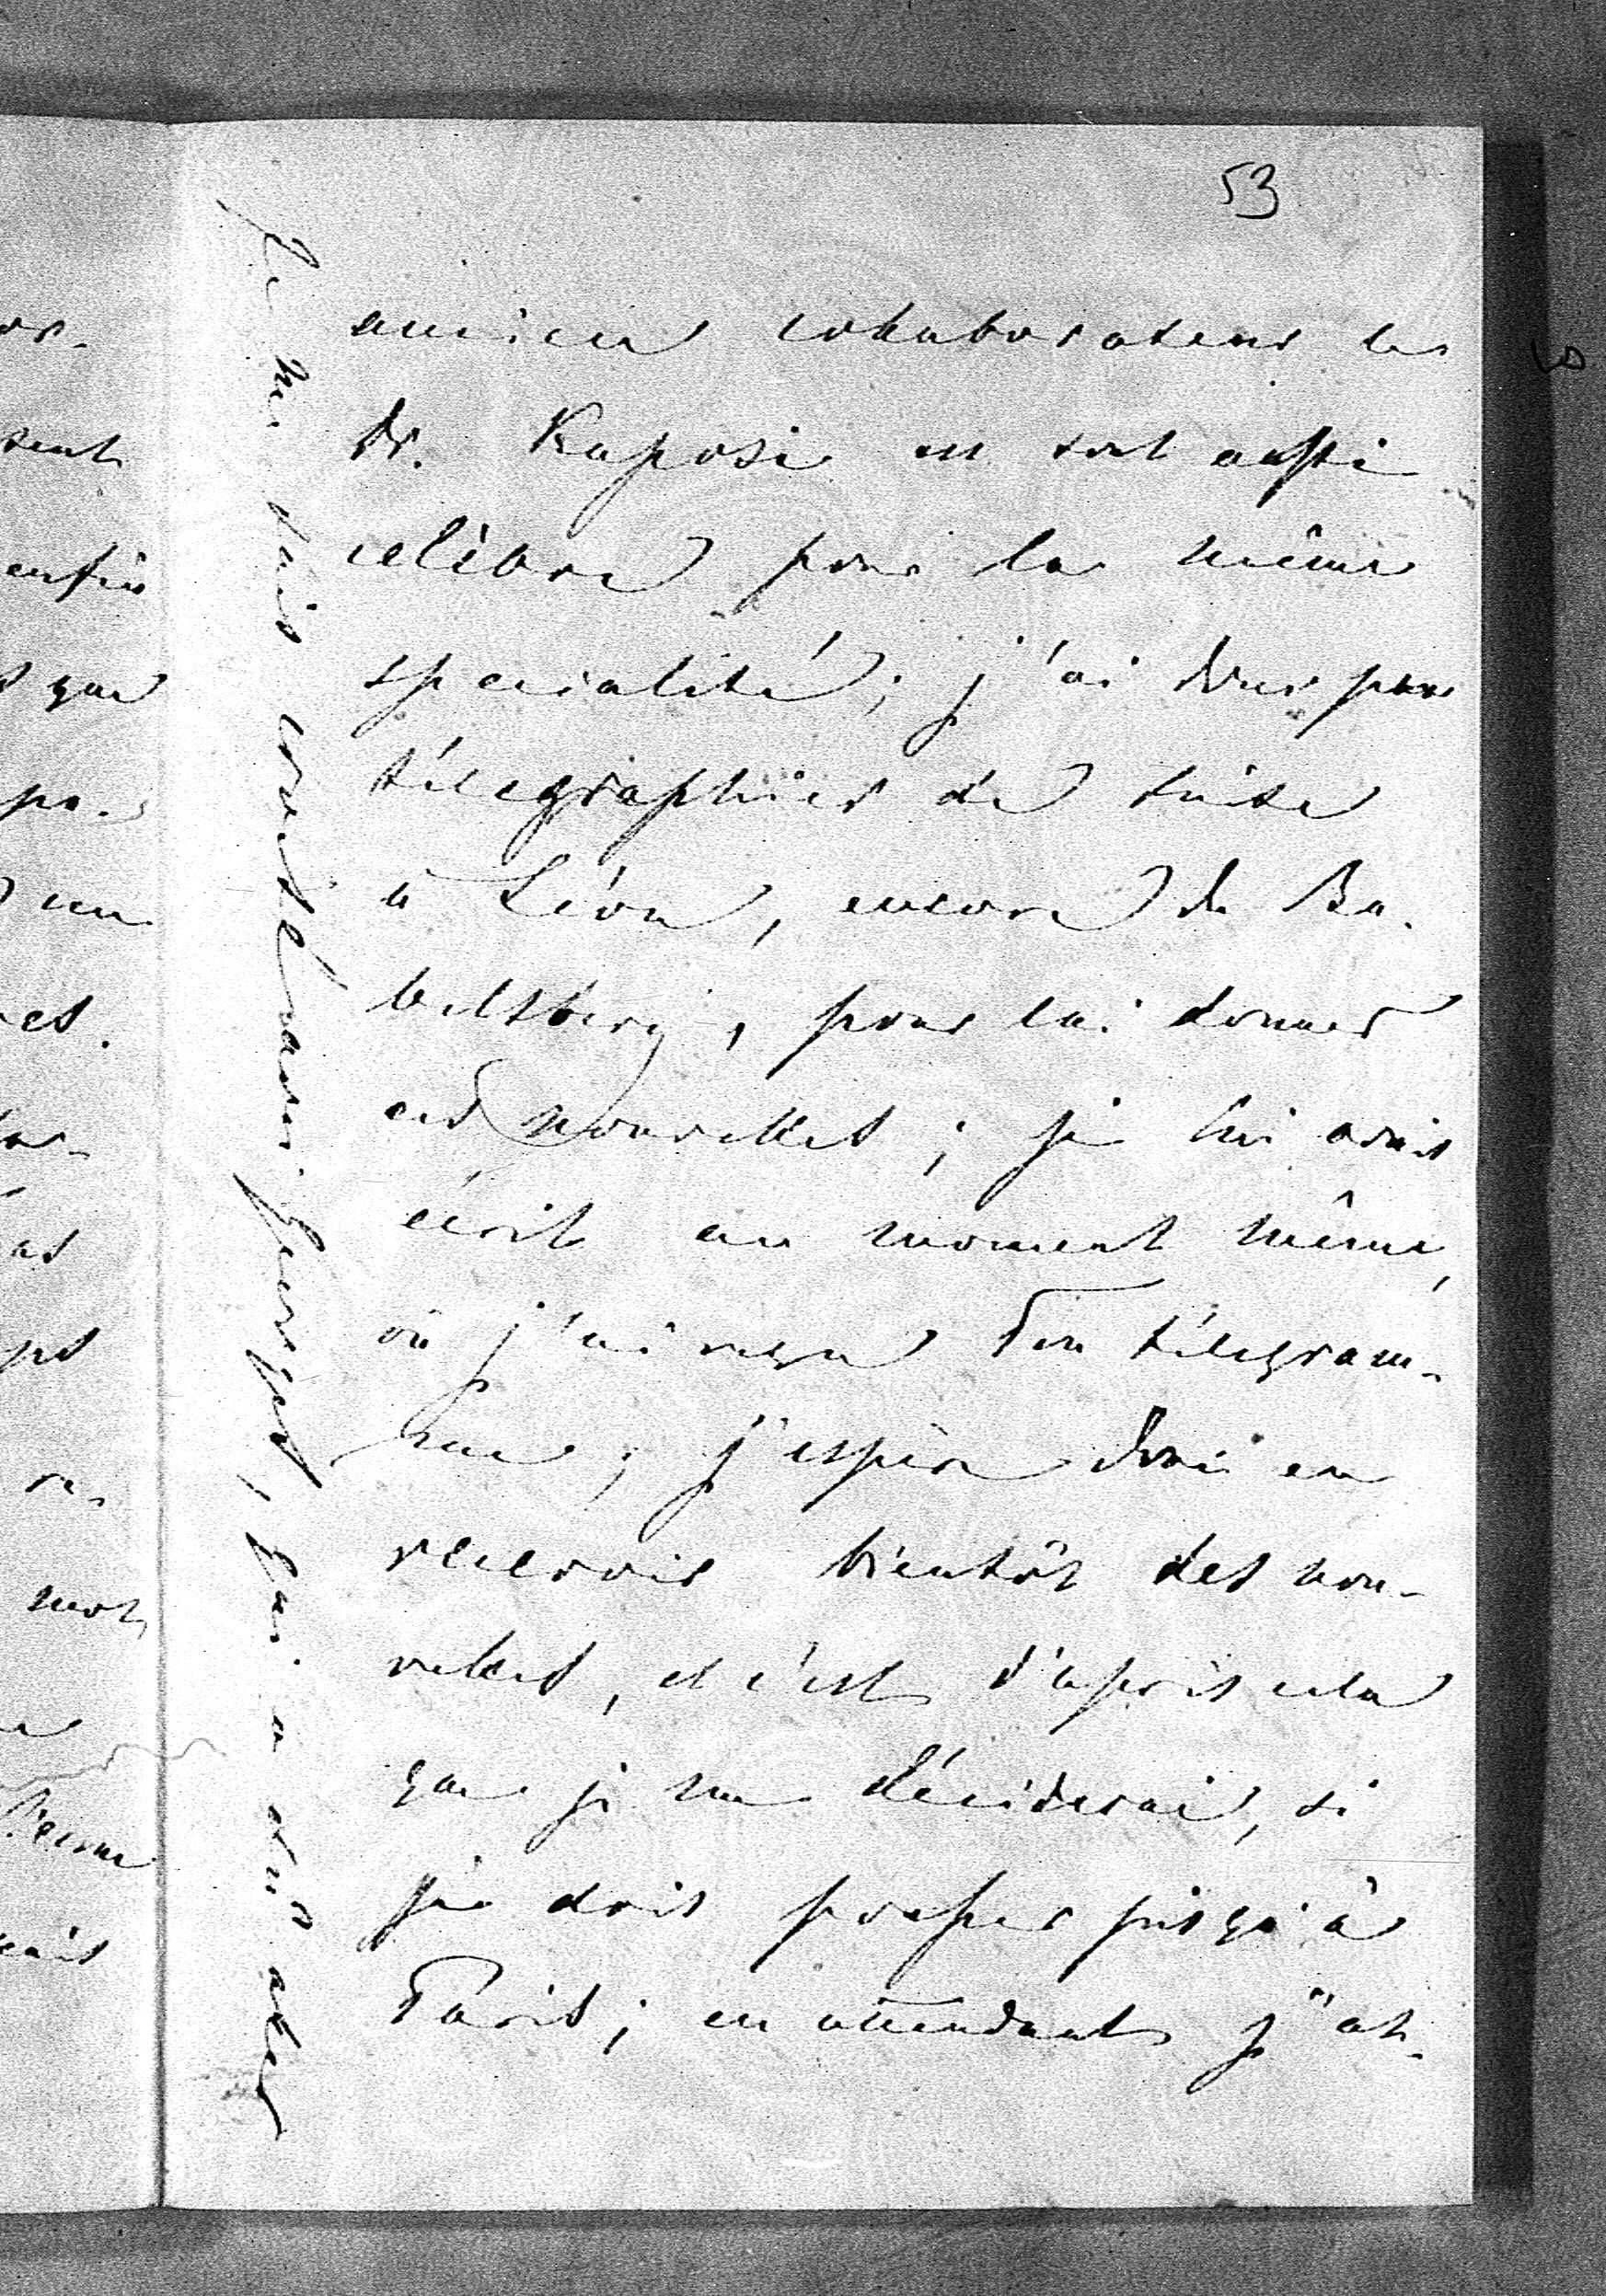 53
ancien collaborateur le
Dr. Kaposi est tout aussi
célèbre pour la même
specialité; j'ai donc pu
télegraphier de suite
à Léon, encore de Ba-
belsberg, pour lui donner
ces nouvelles; je lui avais
écrit au moment même,
où j'ai reçu Ton télegram-
me; j'espère donc en
recevoir bientôt des nou-
velles, et c'est d'après cela
que je me déciderai, si
je dois pousser jusqu'à
Paris; en attendant j'at-